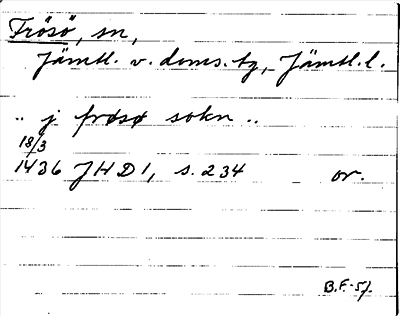 Frösö, sn,
Jämtl. v. doms. tg, Jämtl. l.
.. j frøsø sokn ..
18/3
1436 JHD 1, s. 234 or.
B.F.-51.